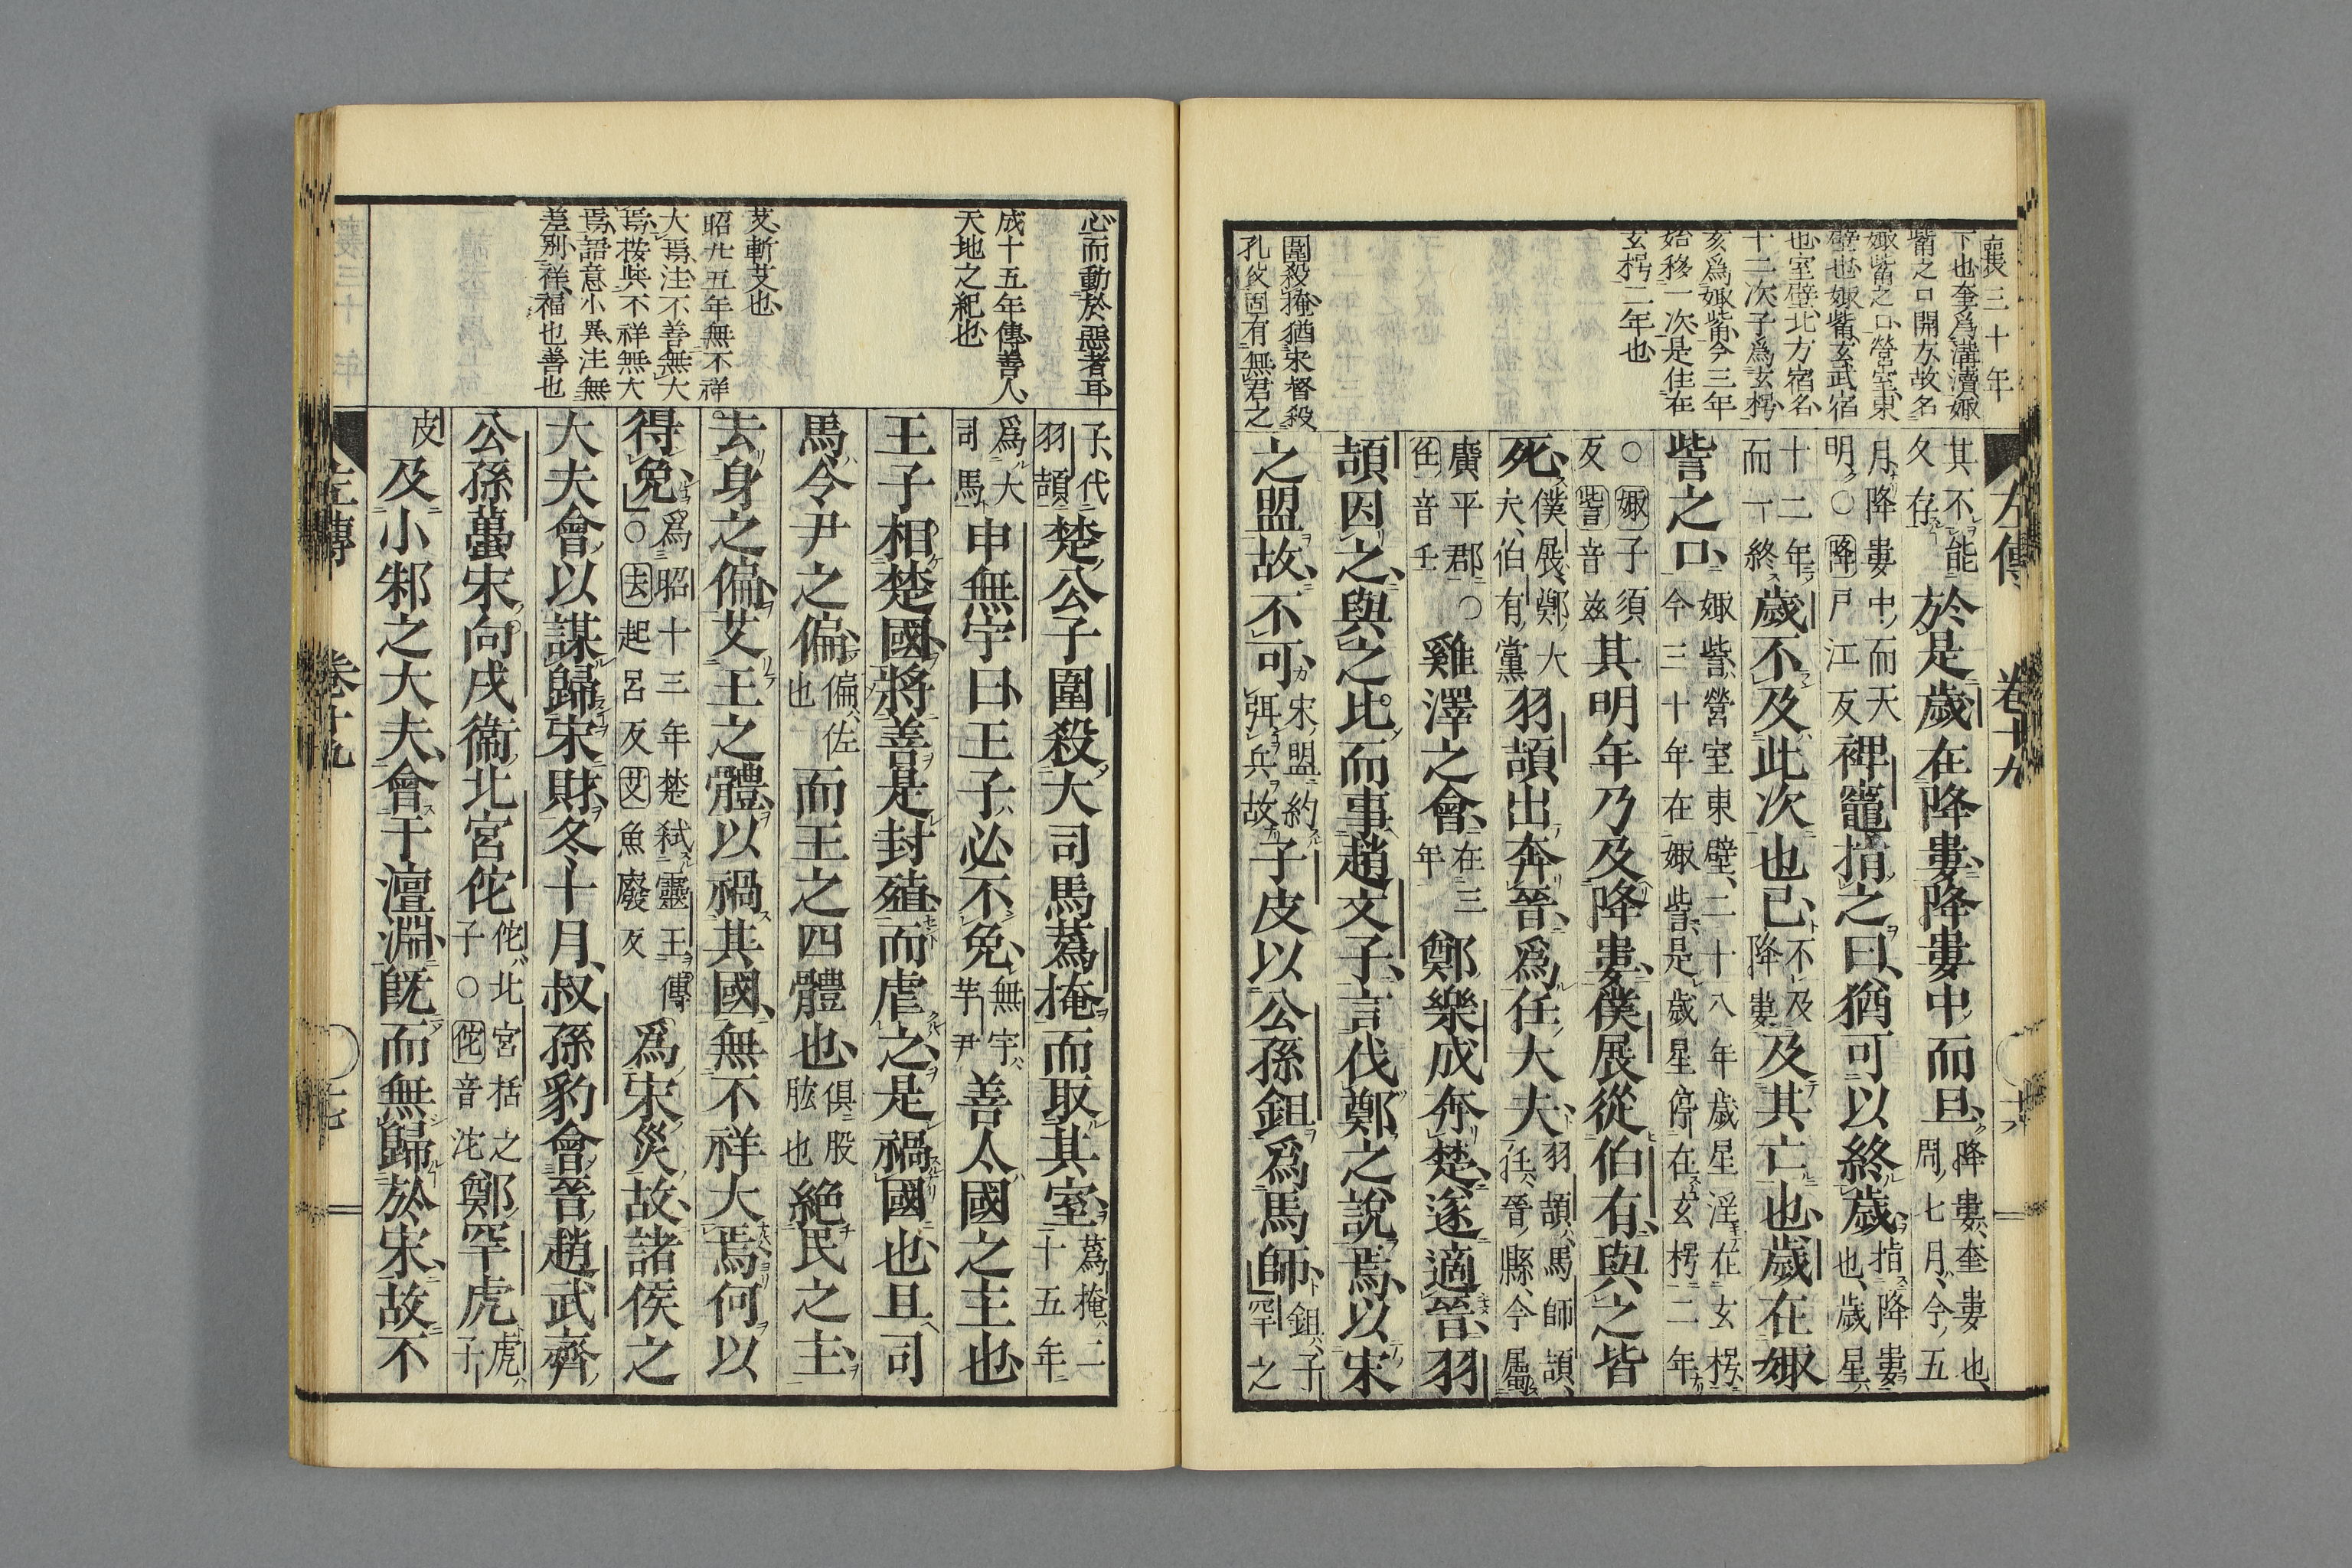 襄三十年
下也奎爲溝瀆娵
訾之口開方故名
娵訾之口營室東
壁也娵訾玄武宿
也室壁北方宿名
十二次子爲玄枵
亥爲娵訾今三年
始移一次是住在
玄枵二年也
圍殺掩猶宋督殺
孔父固有無君之
左傳 卷十九
其不能
久存
於是歲在降婁降婁中而旦
降婁奎婁也
周七月今五
月降婁中而天
明〇降戸江反
裨竈指之曰猶可以終歲
指降婁
也歲星
十二年
而一終
歲不及此次也已
不及
降婁
及其亡也歲在娵
訾之口
娵訾營室東壁二十八年歲星淫在玄枵
今三十年在娵訾是歲星停在玄枵二年
〇娵子須
反訾音兹
其明年乃及降婁僕展從伯有與之皆
死
僕展鄭大
夫伯有黨
羽頡出奔晉爲任大夫
羽頡馬師頡
任晉縣今屬
廣平郡〇
任音壬
雞澤之會
在三
年
鄭樂成奔楚遂適晉羽
頡因之與之比而事趙文子言伐鄭之說焉以宋
之盟故不可
宋盟約
弭兵故
子皮以公孫鉏爲馬師
鉏子
罕之
心而動於惡者耳
成十五年傳善人
天地之紀也
艾斬艾也
昭廿五年無不祥
大焉注不善無大
焉按與不祥無大
焉語意小異注無
差別祥福也善也
子代
羽頡
楚公子圍殺大司馬蔿掩而取其室
蔿掩二
十五年
爲大
司馬
申無宇曰王子必不免
無宇
芋尹
善太國之主也
王子相楚國將善是封殖而虐之是禍國也且司
馬令尹之偏
偏佐
也
而王之四體也
俱股
肱也
絕民之主
去身之偏艾王之體以禍其國無不祥大焉何以
得免
爲昭十三年楚弑靈王傳
〇去起呂反艾魚廢反
爲宋災故諸侯之
大夫會以謀歸宋財冬十月叔孫豹會晉趙武齊
公孫蠆宋向戌衞北宮佗
佗北宮括之
子〇佗音沱
鄭罕虎
虎子
皮
及小邾之大夫會于澶淵既而無歸於宋故不
左傳 卷十九